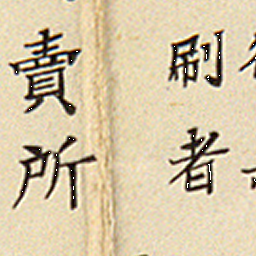 刷者
賣所